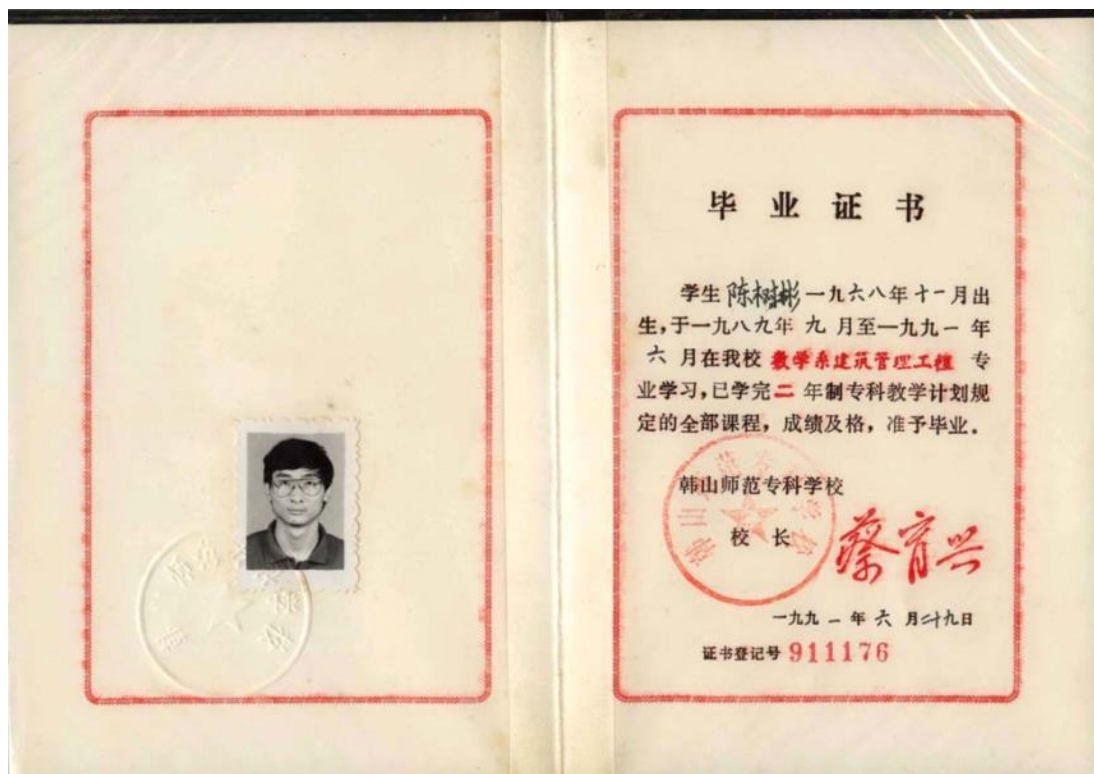 毕业证书
学生陈树彬一九六八年十一月出
生,于一九八九年九月至一九九一年
六月在我校数学系建筑管理工程专
业学习,已学完二年制专科教学计划规
定的全部课程,成绩及格,准予毕业.
韩山师范专科学校
校长 蔡育兴
一九九一年六月二十九日
证书登记号 911176